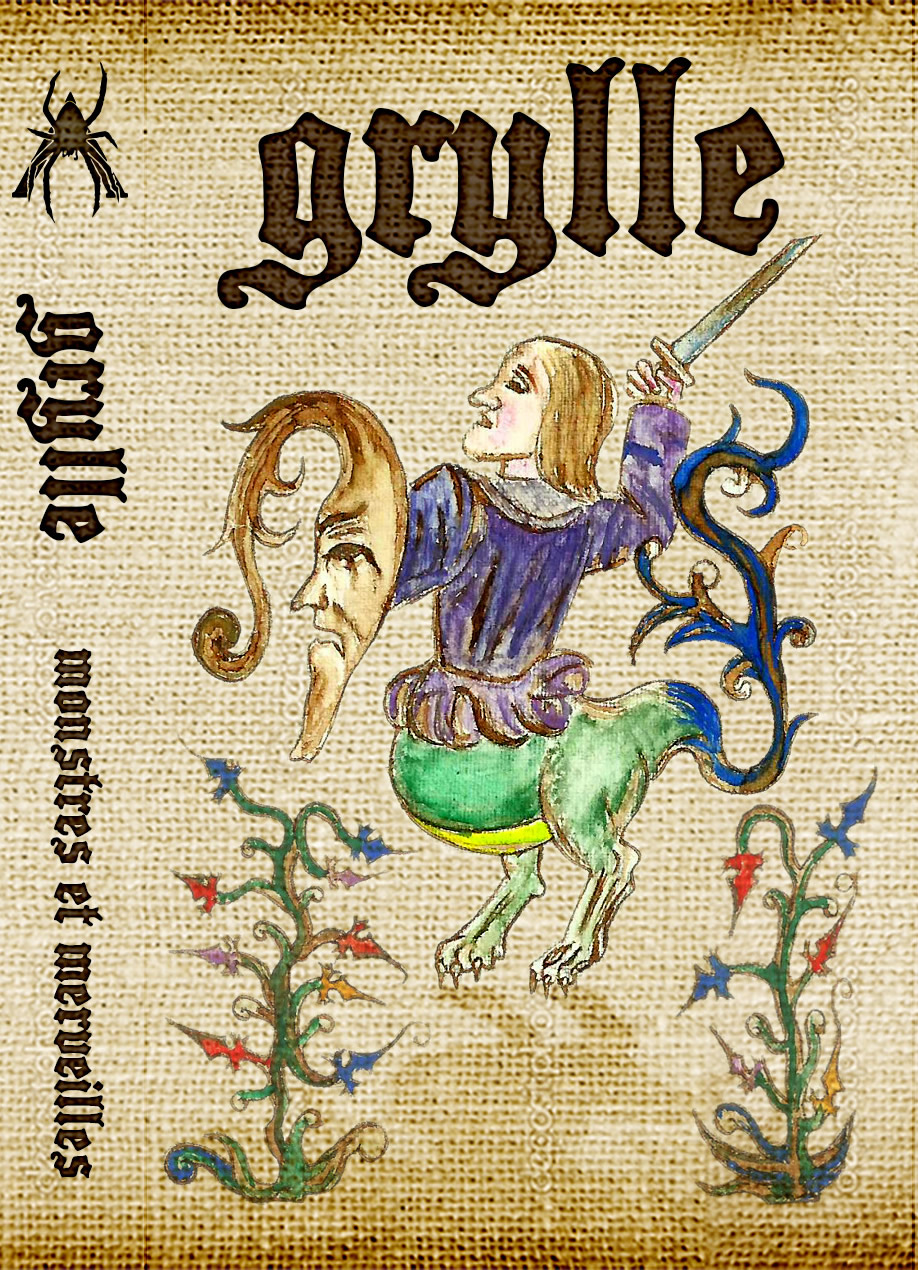 grylle
grylle
monstres et merveilles